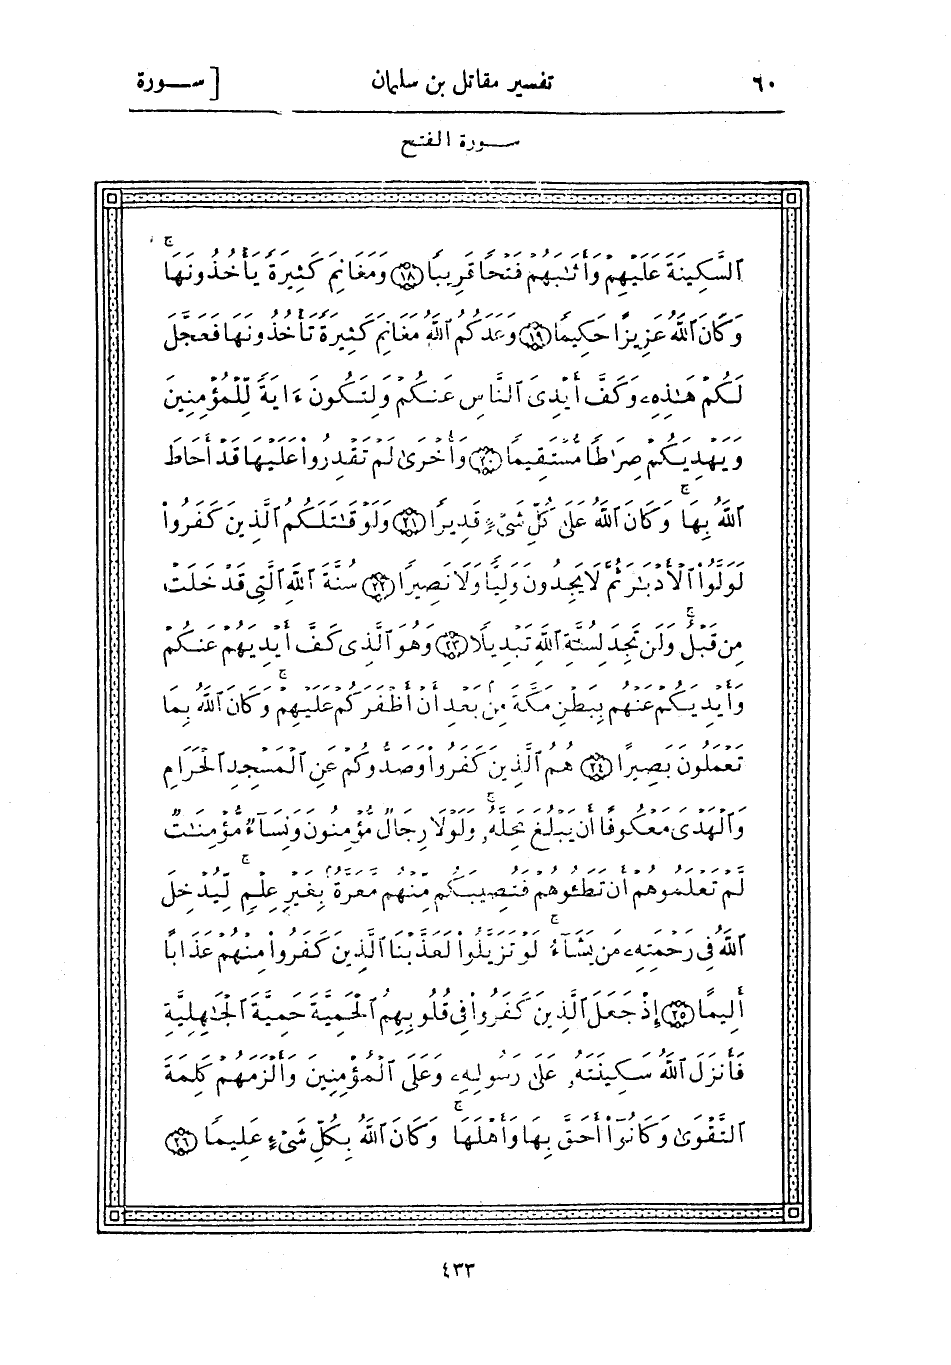 ٦٠ تفسير مقاتل بن سليمان [ ســورة
ســورة الفتح
ٱلسَّكِينَةَ عَلَيْهِمْ وَأَثَـٰبَهُمْ فَتْحًا قَرِيبًا ١٨ وَمَغَانِمَ كَثِيرَةً يَأْخُذُونَهَا ۗ
وَكَانَ ٱللَّهُ عَزِيزًا حَكِيمًا ١٩ وَعَدَكُمُ ٱللَّهُ مَغَانِمَ كَثِيرَةً تَأْخُذُونَهَا فَعَجَّلَ
لَكُمْ هَـٰذِهِۦ وَكَفَّ أَيْدِىَ ٱلنَّاسِ عَنكُمْ وَلِتَكُونَ ءَايَةً لِّلْمُؤْمِنِينَ
وَيَهْدِيَكُمْ صِرَٰطًا مُّسْتَقِيمًا ٢٠ وَأُخْرَىٰ لَمْ تَقْدِرُوا۟ عَلَيْهَا قَدْ أَحَاطَ
ٱللَّهُ بِهَا ۚ وَكَانَ ٱللَّهُ عَلَىٰ كُلِّ شَىْءٍ قَدِيرًا ٢١ وَلَوْ قَـٰتَلَكُمُ ٱلَّذِينَ كَفَرُوا۟
لَوَلَّوُا۟ ٱلْأَدْبَـٰرَ ثُمَّ لَا يَجِدُونَ وَلِيًّا وَلَا نَصِيرًا ٢٢ سُنَّةَ ٱللَّهِ ٱلَّتِى قَدْ خَلَتْ
مِن قَبْلُ ۖ وَلَن تَجِدَ لِسُنَّةِ ٱللَّهِ تَبْدِيلًا ٢٣ وَهُوَ ٱلَّذِى كَفَّ أَيْدِيَهُمْ عَنكُمْ
وَأَيْدِيَكُمْ عَنْهُم بِبَطْنِ مَكَّةَ مِنۢ بَعْدِ أَنْ أَظْفَرَكُمْ عَلَيْهِمْ ۚ وَكَانَ ٱللَّهُ بِمَا
تَعْمَلُونَ بَصِيرًا ٢٤ هُمُ ٱلَّذِينَ كَفَرُوا۟ وَصَدُّوكُمْ عَنِ ٱلْمَسْجِدِ ٱلْحَرَامِ
وَٱلْهَدْىَ مَعْكُوفًا أَن يَبْلُغَ مَحِلَّهُۥ ۚ وَلَوْلَا رِجَالٌ مُّؤْمِنُونَ وَنِسَآءٌ مُّؤْمِنَـٰتٌ
لَّمْ تَعْلَمُوهُمْ أَن تَطَـُٔوهُمْ فَتُصِيبَكُم مِّنْهُم مَّعَرَّةٌۢ بِغَيْرِ عِلْمٍ ۖ لِّيُدْخِلَ
ٱللَّهُ فِى رَحْمَتِهِۦ مَن يَشَآءُ ۚ لَوْ تَزَيَّلُوا۟ لَعَذَّبْنَا ٱلَّذِينَ كَفَرُوا۟ مِنْهُمْ عَذَابًا
أَلِيمًا ٢٥ إِذْ جَعَلَ ٱلَّذِينَ كَفَرُوا۟ فِى قُلُوبِهِمُ ٱلْحَمِيَّةَ حَمِيَّةَ ٱلْجَـٰهِلِيَّةِ
فَأَنزَلَ ٱللَّهُ سَكِينَتَهُۥ عَلَىٰ رَسُولِهِۦ وَعَلَى ٱلْمُؤْمِنِينَ وَأَلْزَمَهُمْ كَلِمَةَ
ٱلتَّقْوَىٰ وَكَانُوٓا۟ أَحَقَّ بِهَا وَأَهْلَهَا ۚ وَكَانَ ٱللَّهُ بِكُلِّ شَىْءٍ عَلِيمًا ٢٦
٤٣٣